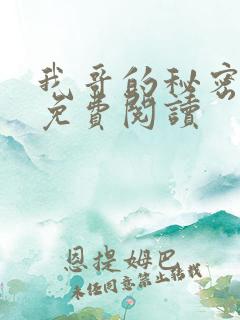 我哥的秘密
免費閱讀
恩提姆巴
未经同意禁止转载